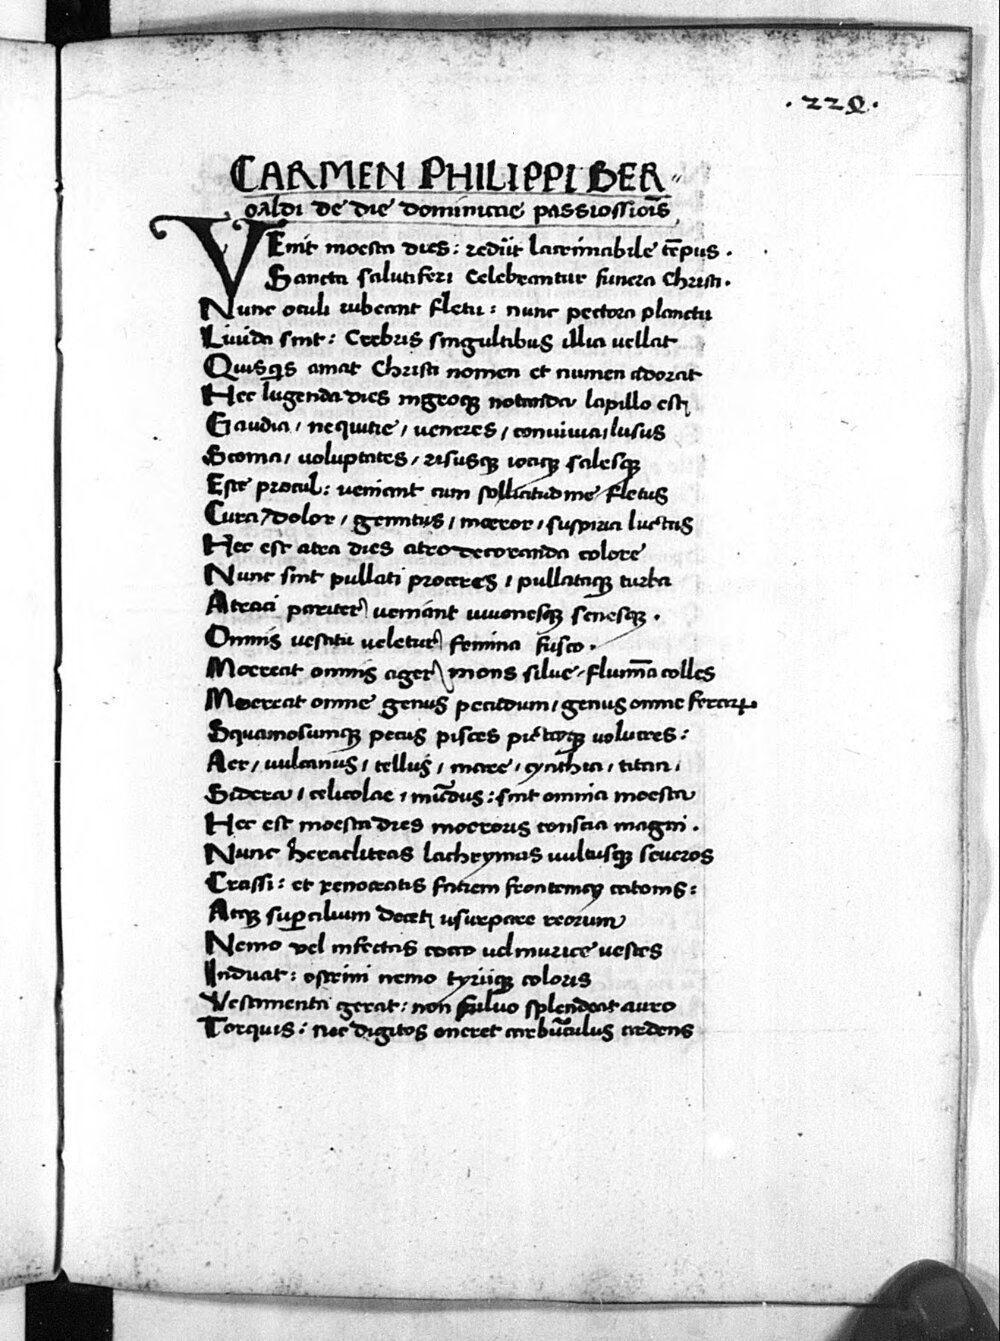 .229.
CARMEN PHILIPPI BER„
oaldi de die dominice passiossiois̄
VEnit moesta dies: rediit lacrimabile tēpus.
Sancta salutiferi celebrantur funera Christi.
Nunc oculi rubeant fletu: nunc pectora planctu
Liuida sint: Crebris singultibus illia uellat
Quisq̄s amat Christi nomen et numen adorat
Hec lugenda dies nigroqꝫ notanda lapillo est
Gaudia / nequitie / ueneres / conuiuia / lusus
Scoma / uoluptates / risusqꝫ iociqꝫ salesqꝫ
Este procul: ueniant cum sollicitudine fletus
Cura / dolor / gemitus / meror / suspiria luctus
Hec est atra dies atro decoranda colore
Nunc sint pullati proceres / pullataqꝫ turba
Atrati pariter ueniant iuuenesqꝫ senesqꝫ.
Omnis uestitu ueletur femina fusco.
Moereat omnis ager mons silue flumīa colles
Moereat omne genus pecudum / genus omne ferarꝝ.
Squamosumqꝫ pecus pisces picteqꝫ uolucres:
Aer / uulcanus / tellus / mare / cynthia / titan /
Sidera / celicolae / mūdus: sint omnia moesta
Hec est moesta dies moeroris conscia magni.
Nunc heracliteas lachrymas uultusqꝫ seueros
Crassi: et xenocratis faciem frontemqꝫ catonis:
Atqꝫ suꝑcilium decet usurpare reorum
Nemo uel infectas cocco uel murice uestes
Induat: ostrini nemo tyriiqꝫ coloris
Vestimenta gerat: non fuluo splendeat auro
Torquis: nec digitos oneret carbūculus ardens